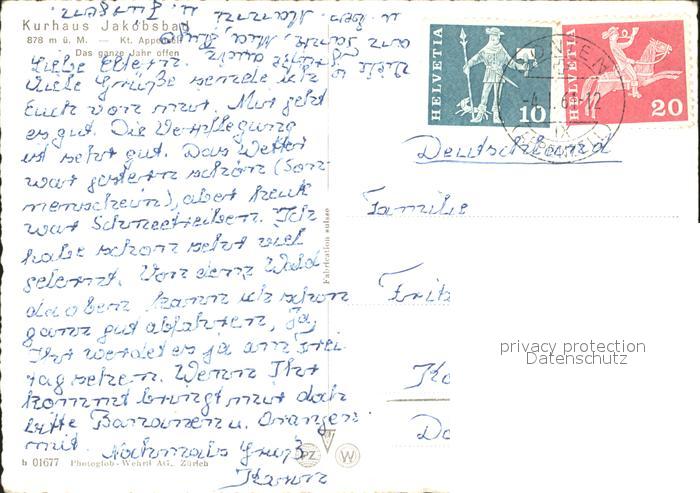 Kurhaus Jakobsbad
878 m ü. M. — Kt. Appenzell
Das ganze Jahr offen
Liebe Eltern.
Viele Grüße sende ich
Euch von mut. Mut geht
es gut. Die Verpflegung
ist sehr gut. Das Wetter
war gestern schön (Son
nenschein), aber heute
war Schneetreiben. Ich
habe schon sehr viel
gelernt. Von dem Wald
da oben kann ich schon
ganz gut abfahren, Ja,
Ihr werdet es ja am Frei
tag sehen. Wenn Ihr
kommt bringt mir doch
bitte Bananen u. Orangen
mit. Nochmals Gruß
Viele Grüße auch
an
HELVETIA
10
HELVETIA
20
Deutschland
Familie
Fritz
Fabrication suisse
privacy protection
Datenschutz
b 01677 Photoglob-Wehrli AG, Zürich
PZ
W